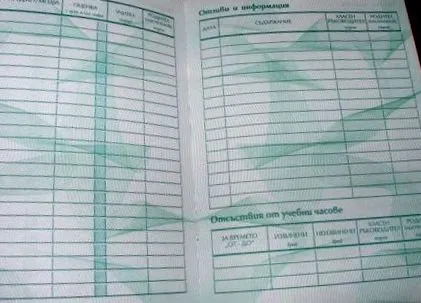 ОЦЕНКА
УЧИТЕЛ
РОДИТЕЛ
Отзиви и информация
ДАТА
СЪДЪРЖАНИЕ
КЛАСЕН
РЪКОВОДИТЕЛ
РОДИТЕЛ
Отсъствия от учебни часове
ЗА ВРЕМЕТО
"ОТ - ДО"
ИЗВИНЕНИ
брой
НЕИЗВИНЕНИ
брой
КЛАСЕН
РЪКОВОДИТЕЛ